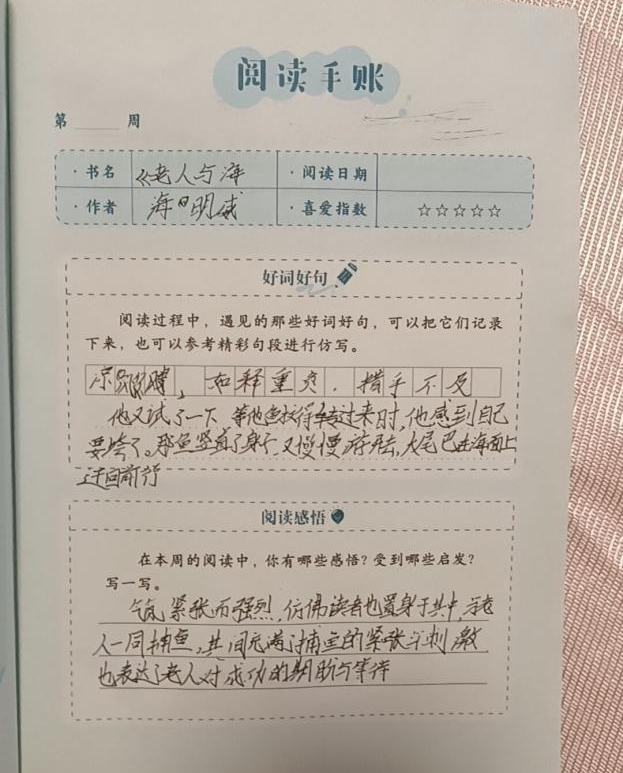 阅读手账
第 周
·书名 《老人与海 ·阅读日期
·作者 海明威 ·喜爱指数 ☆☆☆☆☆
好词好句
阅读过程中，遇见的那些好词好句，可以把它们记录
下来，也可以参考精彩句段进行仿写。
如释重负．措手不及
他又试了一下 等他鱼拉得转过来时，他感到自己
要垮了。那鱼竖直了身子，又慢慢游去，大尾巴在海面上
迂回前行
阅读感悟
在本周的阅读中，你有哪些感悟？受到哪些启发？
写一写。
气氛紧张而强烈，仿佛读者也置身于其中，与老
人一同捕鱼，其间充满了捕鱼的紧张与刺激
也表达了老人对成功的期盼与等待